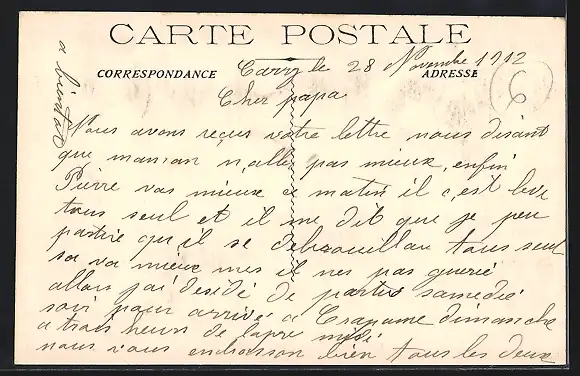 CARTE POSTALE
CORRESPONDANCE
ADRESSE
Carry le 28 Novembre 1912
Cher papa
Nous avons reçus votre lettre nous disant
que maman n,allez pas mieux, enfin
Pierre vas mieux ce matin il c,est levé
tous seul et il me dit que je peu
partire qu,il se debrouillau tous seul
sa va mieux mes il nes pas guerié
allors j'ai desidé de partir samedie
soir pour arrivé a Crapone dimanche
a trois heurs de lapre midi
nous vous embrasson bien tous les deux
a bientot